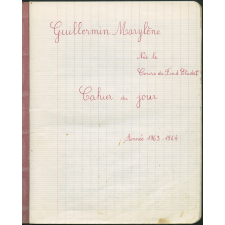 Guillermin Marylène
Née le
Cours de
Cahier du jour
Année 1963-1964